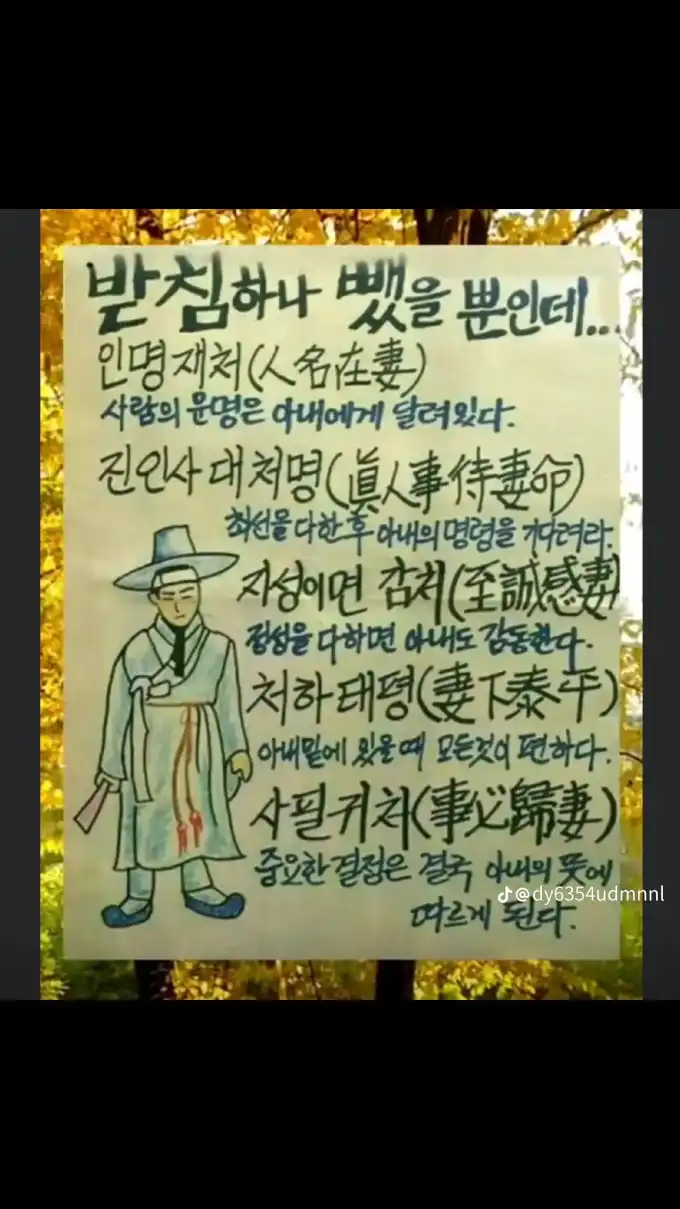 받침하나 뺐을 뿐인데...
인명재처(人名在妻)
사람의 운명은 아내에게 달려있다.
진인사대처명(眞人事待妻命)
최선을 다한후 아내의 명령을 기다려라.
지성이면 감처(至誠感妻)
정성을 다하면 아내도 감동한다.
처하태평(妻下泰平)
아내밑에 있을때 모든것이 편하다.
사필귀처(事必歸妻)
중요한 결정은 결국 아내의 뜻에
따르게 된다.
@dy6354udmnnl